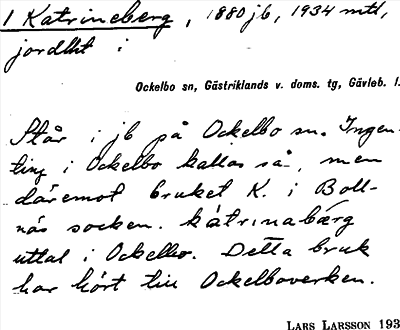 1 Katrineberg, 1880 jb, 1934 mtl,
jordlht i
Ockelbo sn, Gästriklands v. doms. tg, Gävleb. l.
Står i jb på Ockelbo sn. Ingen-
ting i Ockelbo kallas så, men
däremot bruket K. i Boll-
näs socken. kátrinabærg
uttal i Ockelbo. Detta bruk
har hört till Ockelboverken.
LARS LARSSON 193